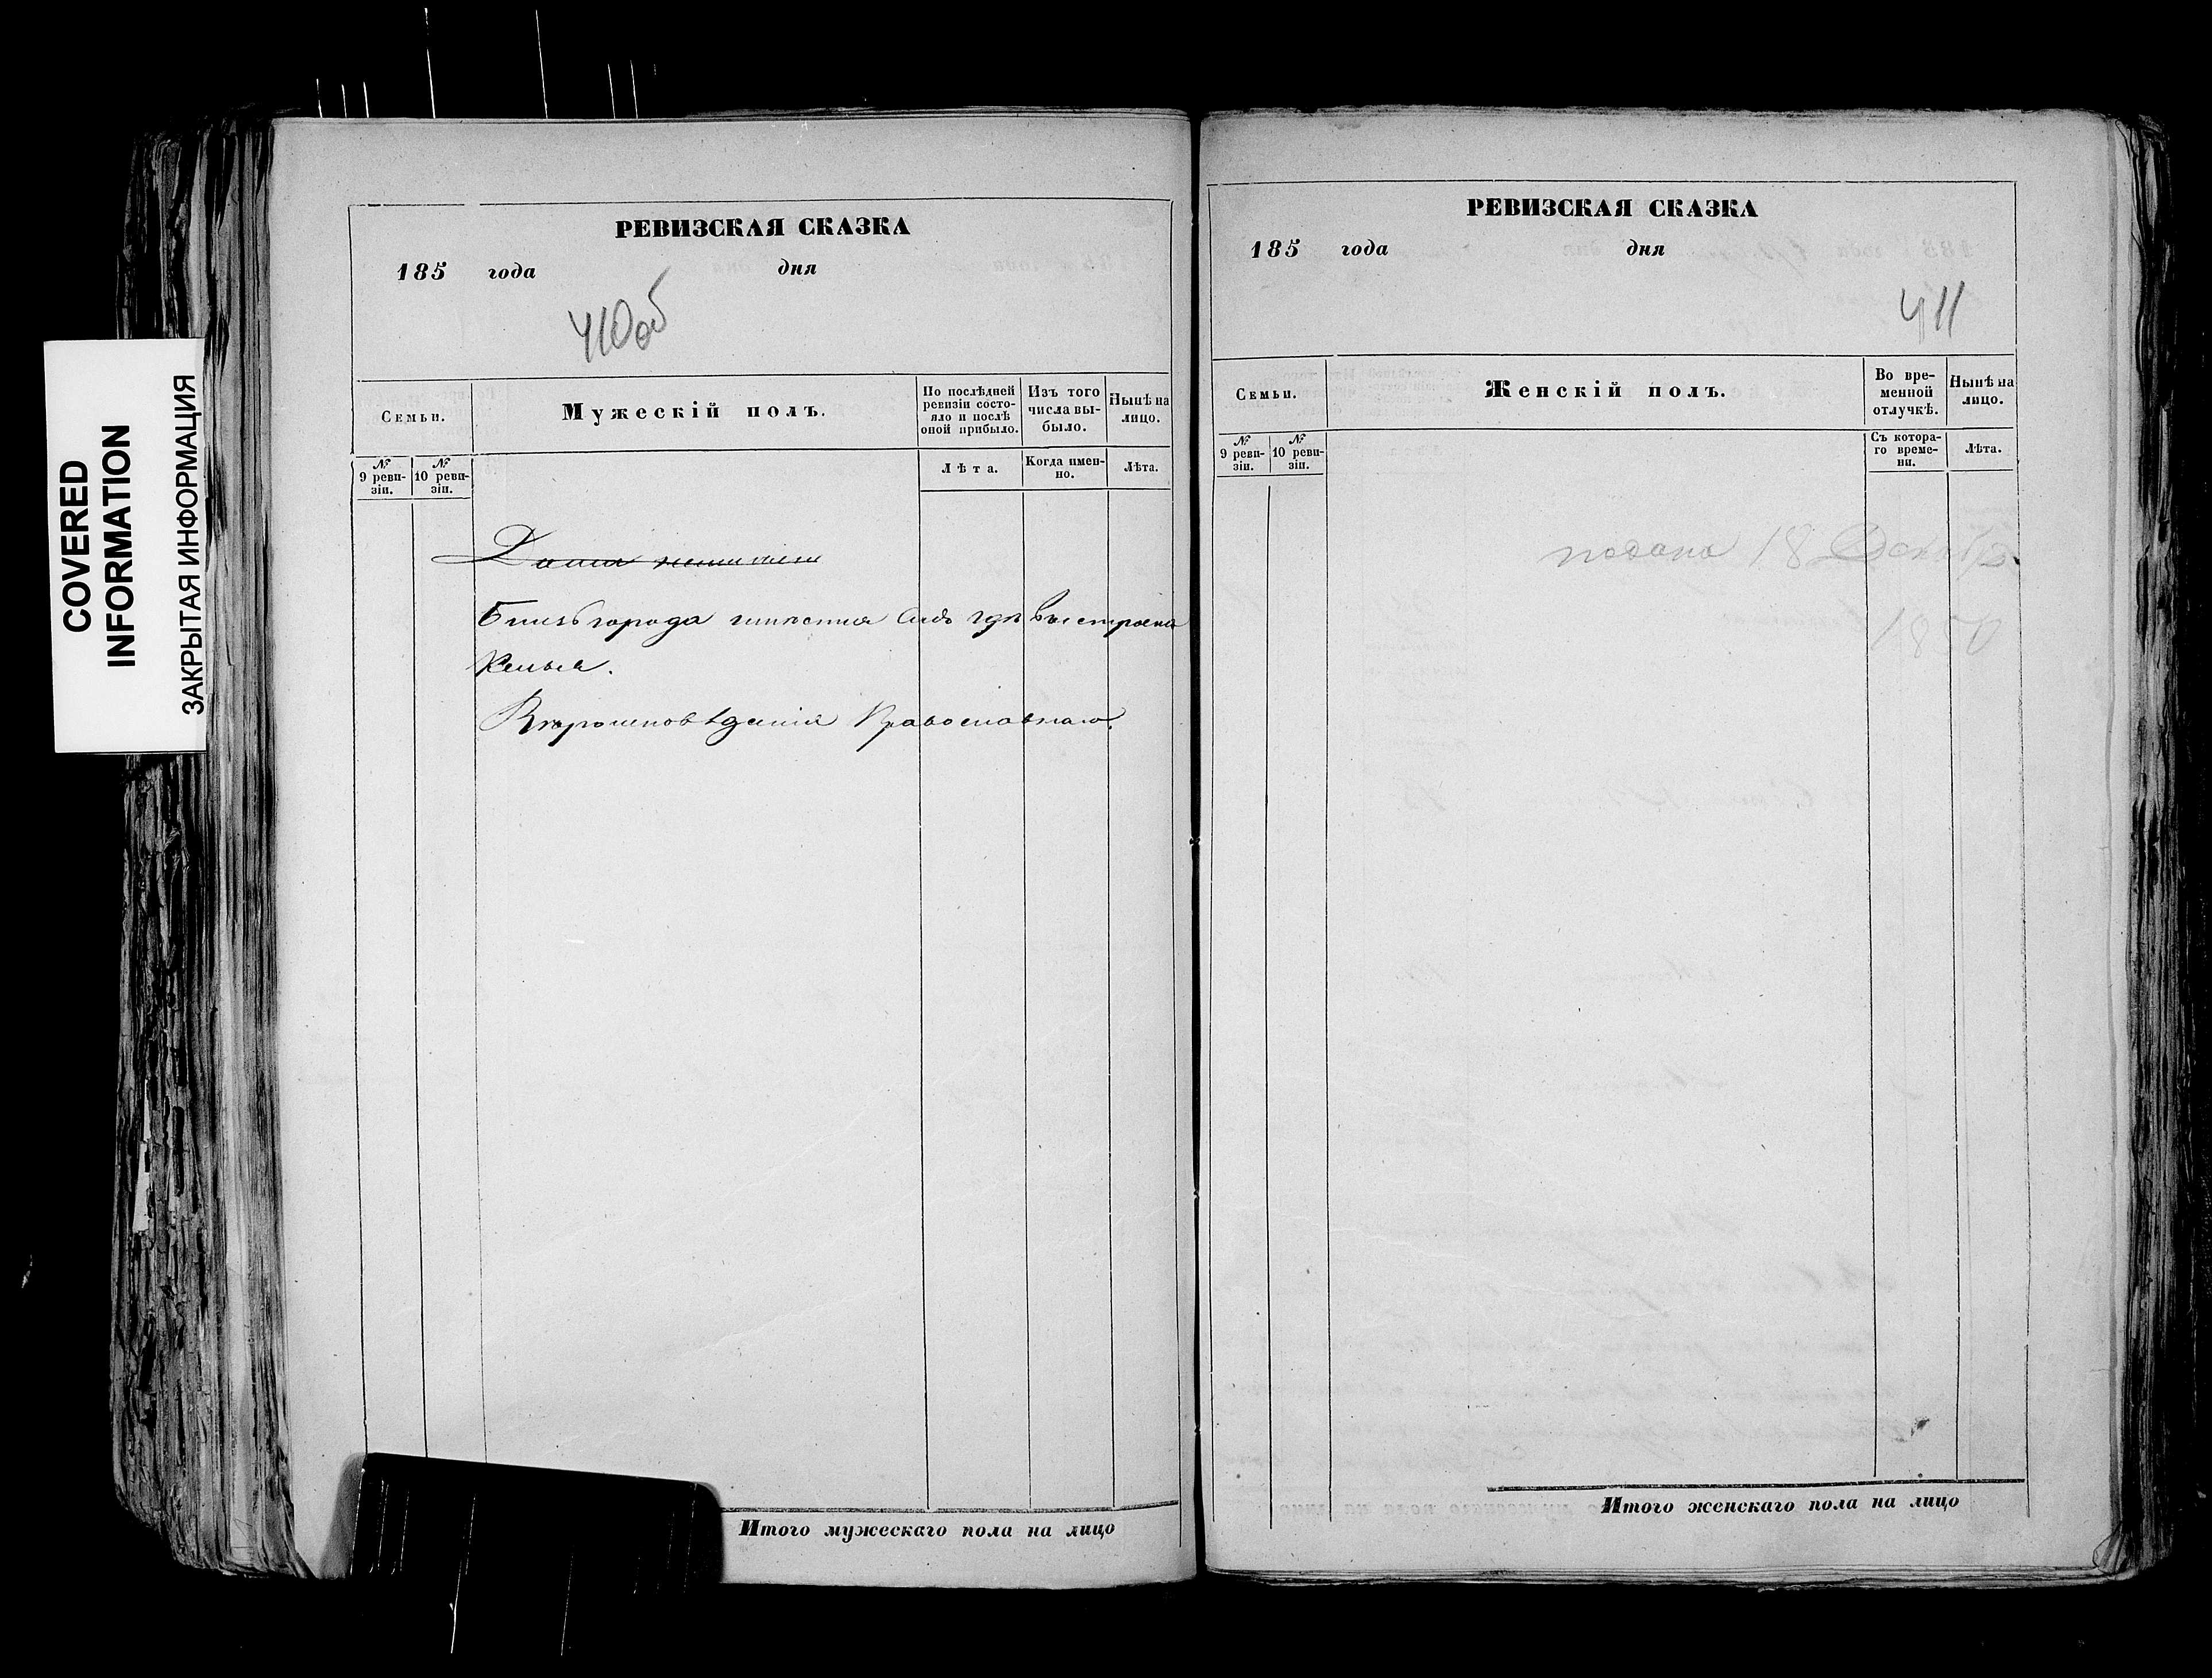 COVERED
INFORMATION
ЗАКРЫТАЯ ИНФОРМАЦИЯ
РЕВИЗСКАЯ СКАЗКА
185 года дня
410об
Семьи.
Мужескій полъ.
По послѣдней ревизіи состояло и послѣ оной прибыло.
Изъ того числа выбыло.
Нынѣ на лицо.
№ 9 ревизіи.
№ 10 ревизіи.
Лѣта.
Когда именно.
Лѣта.
Близь города имѣетца садъ гдѣ выстроена
Келья.
Вѣроисповѣданія Православнаго.
Итого мужескаго пола на лицо
РЕВИЗСКАЯ СКАЗКА
185 года дня
411
Семьи.
Женскій полъ.
Во временной отлучкѣ.
Нынѣ на лицо.
№ 9 ревизіи.
№ 10 ревизіи.
Съ котораго времени.
Лѣта.
подана 18 Декаб
1850
Итого женскаго пола на лицо